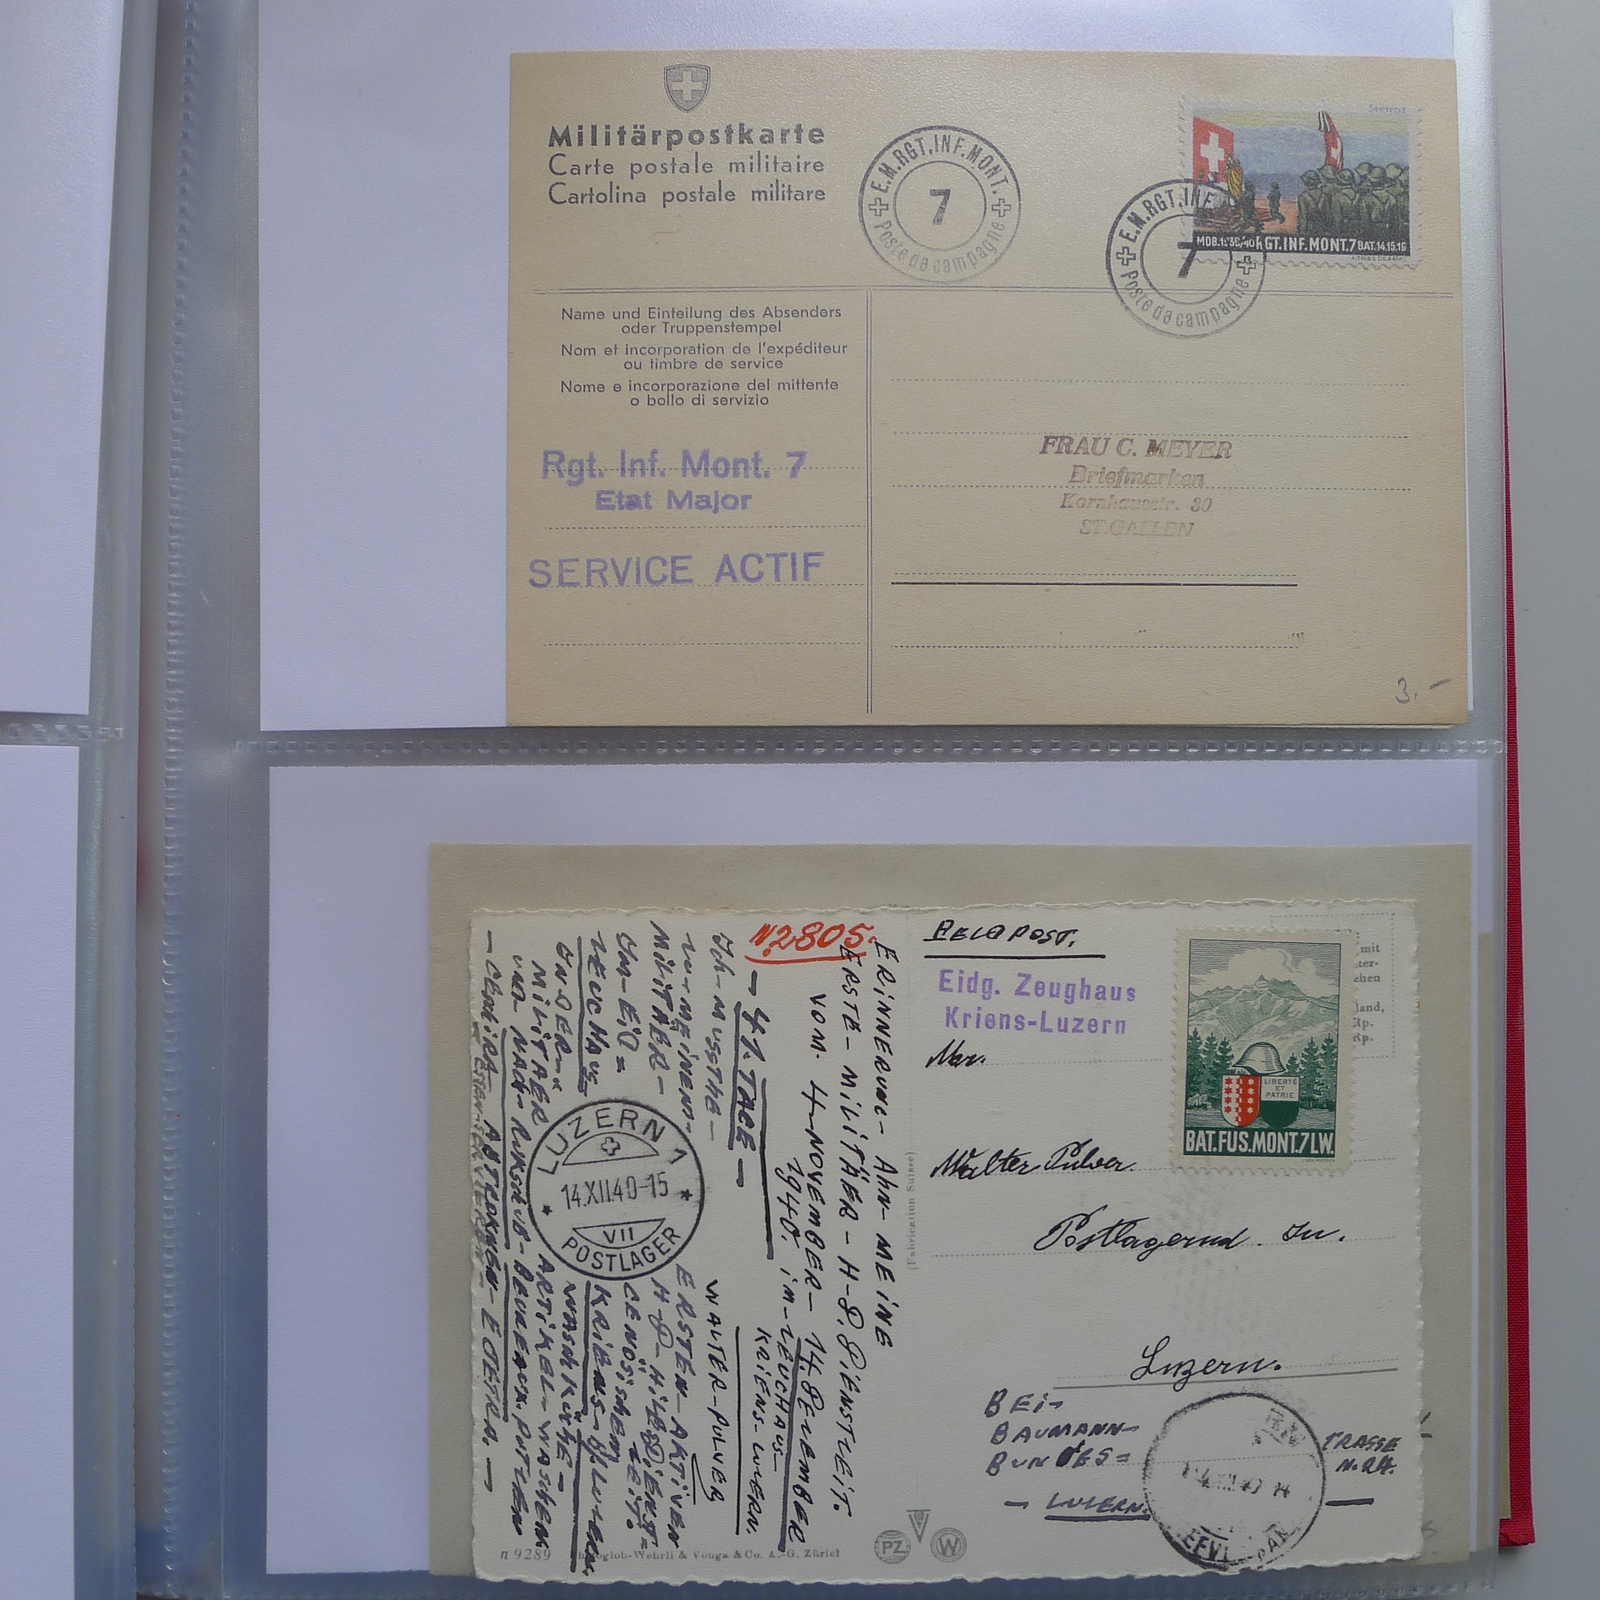 Militärpostkarte
Carte postale militaire
Cartolina postale militare
E.M.RGT.INF.MONT.
7
Poste de campagne
E.M.RGT.INF
7
Poste de campagne
RGT.INF.MONT.7 BAT.14.15.16
Name und Einteilung des Absenders
oder Truppenstempel
Nom et incorporation de l'expéditeur
ou timbre de service
Nome e incorporazione del mittente
o bollo di servizio
Rgt. Inf. Mont. 7
Etat Major
SERVICE ACTIF
FRAU C. MEYER
Briefmarken
Kornhausstr. 30
ST. GALLEN
3.-
FELDPOST.
Eidg. Zeughaus
Kriens-Luzern
Walter Pulver.
Postlagernd. In.
Luzern.
BEI-
BAUMANN-
BUNDES=
TRASSE
N.24.
- LUZERN.
LIBERTÉ
ET
PATRIE
BAT.FUS.MONT.7 LW.
mit
chen
land,
Rp.
Rp.
N.2805.
ERINNERUNG- AHN- MEINE
ERSTE- MILITÄER- H-D,DIENSTZEIT.
VOM. 4-NOVEMBER- 14 DEZEMBER
1940. im-ZEUGHAUS-
KRIENS-LUZERN.
- 41. TAGE -
WALTER-PULVER
Ich-MUSSTHE-
ERSTEN-AKTIVEN
MILITÄER-
H-D-HILFSDIENST=
ZEIT.
IM-EID=
GENÖSISCHEM
ZEUGHAUS
KRIENS-LUZERN
WASCHKÜCHE-
MILITAER
ARTIKEL-WASCHEN
LUZERN 1
14.XII.40-15
VII
POSTLAGER
(Fabrication Suisse)
PZ
W
n 9289
Photoglob-Wehrli & Vouga & Co. A.-G. Zürich